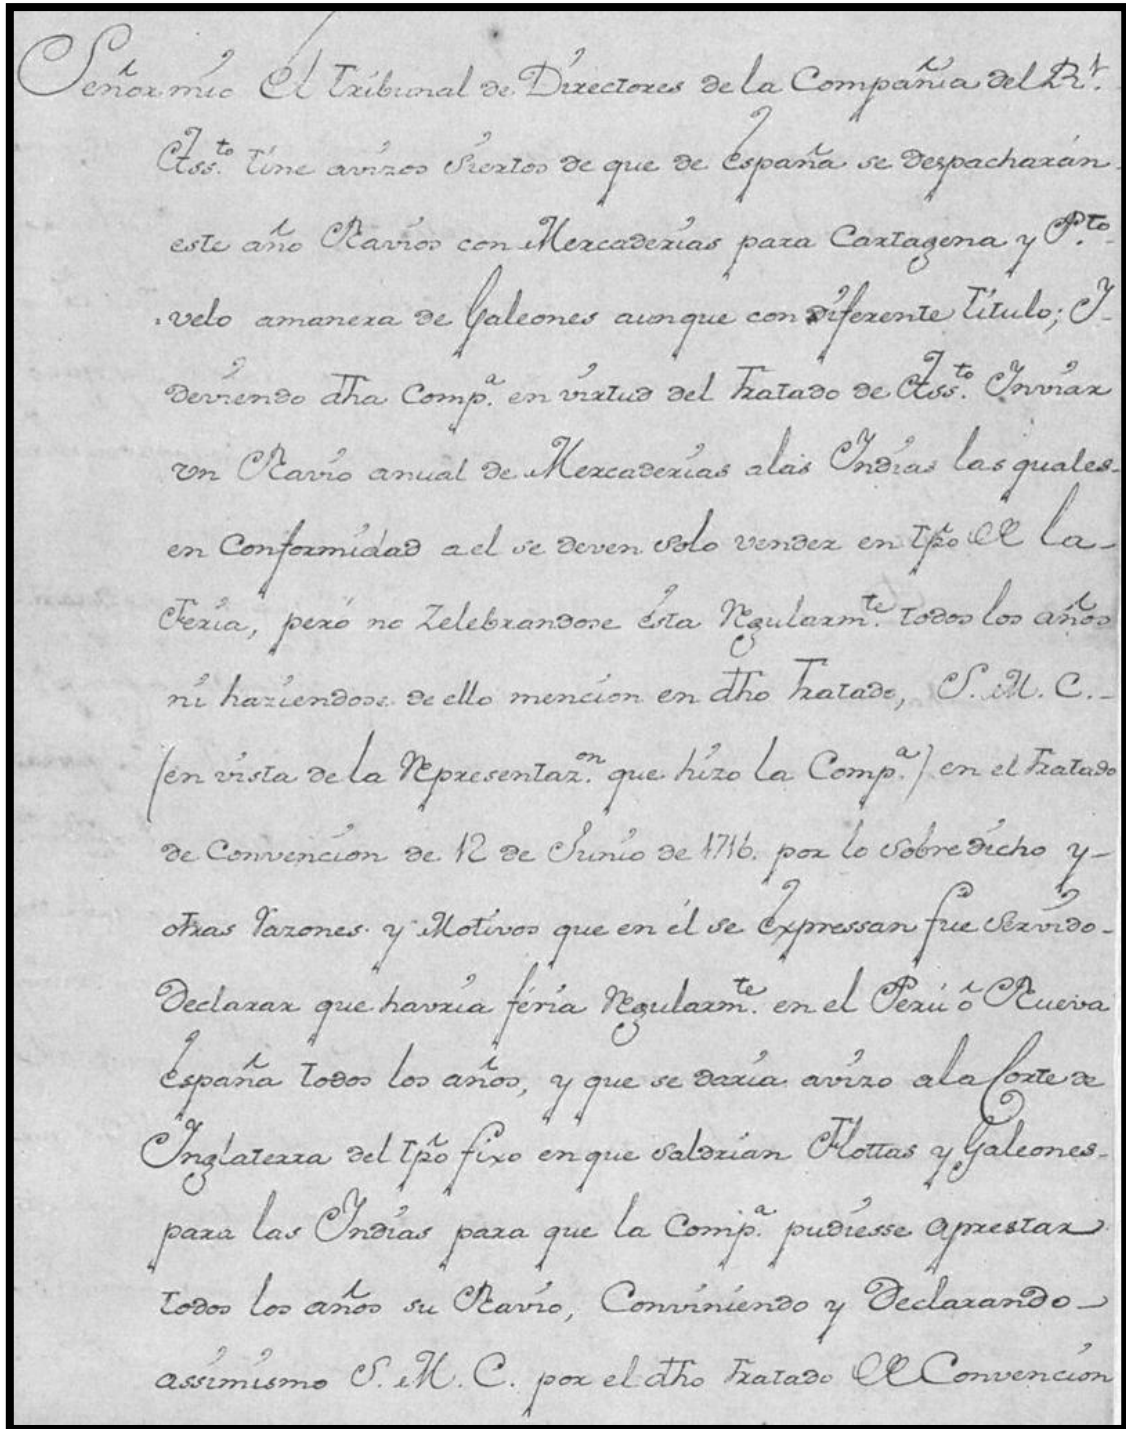 Señor mio El tribunal de Directores de la Compañia del Rl.
Ass.to tine avizos Siertos de que de España se despacharán
este año Navios con Mercaderias para Cartagena y P.to
velo amanera de Galeones aunque con diferente titulo; I
deviendo dha Comp.a en virtud del tratado de Ass.to Inviar
un Navio anual de Mercaderias alas Indias las quales
en Conformidad a el se deven solo vender en tpo de la
Feria, peró no zelebrandose ésta Regularm.te todos los años
ni haziendose de ello mencion en dho tratado, S. M. C.
(en vista de la Representaz.on que hizo la Comp.a) en el tratado
de Convencion de 12 de Junio de 1716. por lo sobre dicho y
otras razones y Motivos que en él se Expressan fue servido
Declarar que havria féria Regularm.te en el Perú ô Nueva
España todos los años, y que se daria avizo ala Corte de
Inglaterra del tpo fixo en que saldrian Flottas y Galeones
para las Indias para que la Comp.a pudiesse aprestar
todos los años su Navio, Conviniendo y Declarando
assimismo S. M. C. por el dho tratado de Convencion